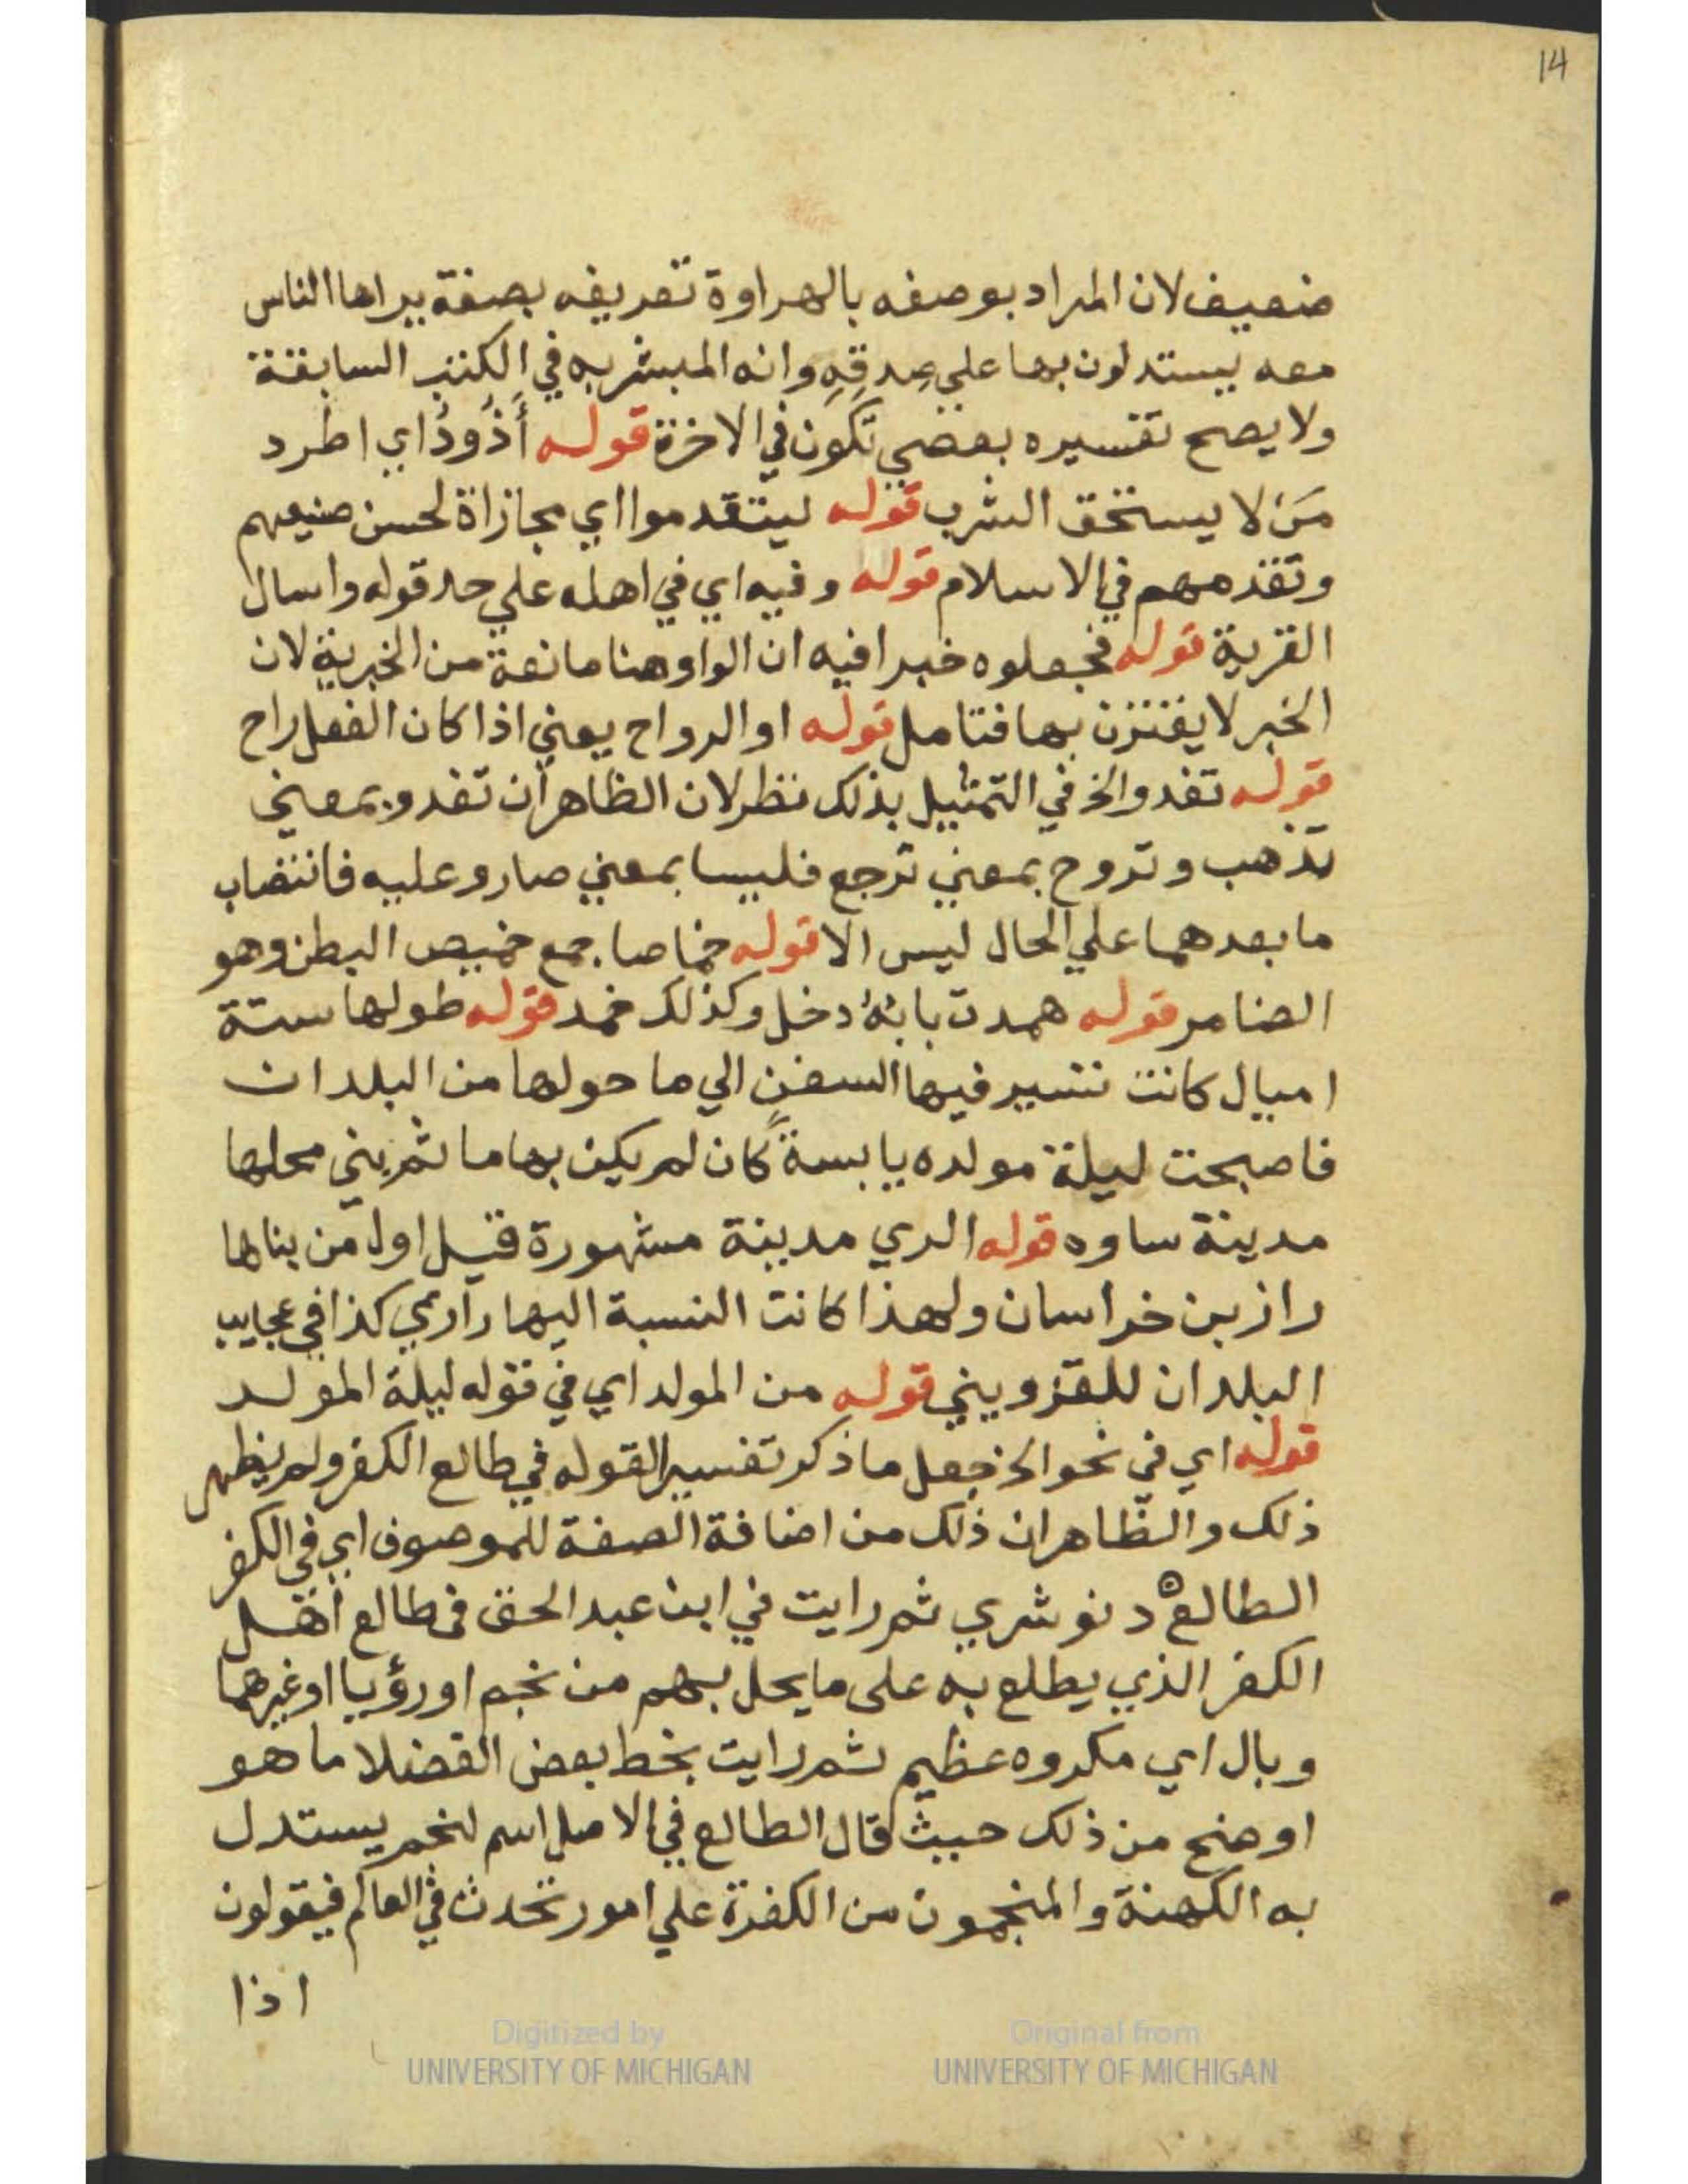 14
ضعيف لان المراد بوصفه بالهراوة تعريفه بصفة يراها الناس
معه يستدلون بها علي صدقِهِ وانه المبشر به في الكتب السابقة
ولا يصح تفسيره بعصي تكون في الاخرة قوله أَذُودُ اي اطرد
مَنْ لا يستحق الشرب قوله ليتقدموا اي مجازاة لحسن صنيعهم
وتقدمهم في الاسلام قوله وفيه اي في اهله علي حد قوله واسال
القرية قوله فجعلوه خبرا فيه ان الواو هنا مانعة من الخبرية لان
الخبر لا يقترن بها فتامل قوله او الرواح يعني اذا كان الفعل راح
قوله تغدو الخ في التمثيل بذلك نظر لان الظاهر ان تغدو بمعني
تذهب وتروح بمعني ترجع فليسا بمعني صار وعليه فانتصاب
ما بعدهما علي الحال ليس الا قوله خماصا جمع خميص البطن وهو
الضامر قوله همدت بابُهُ دخل وكذلك خمد قوله طولها ستة
اميال كانت تسير فيها السفن الي ما حولها من البلدان
فاصبحت ليلة مولده يابسةً كان لم يكن بها ما ثم بني محلها
مدينة ساوه قوله الري مدينة مشهورة قيل اول من بناها
راز بن خراسان ولهذا كانت النسبة اليها رازي كذا في عجايب
البلدان للقزويني قوله من المولد اي في قوله ليلة المولد
قوله اي في نحو الخ جعل ما ذكر تفسيرا لقوله في طالع الكفر ولم يظهر
ذلك والظاهر ان ذلك من اضافة الصفة للموصوف اي في الكفر
الطالع دنوشري ثم رايت في ابن عبد الحق في طالع اهل
الكفر الذي يطلع به على ما يحل بهم من نجم او رؤيا او غيرهما
وبال اي مكروه عظيم ثم رايت بخط بعض الفضلا ما هو
اوضح من ذلك حيث قال الطالع في الاصل اسم لنجم يستدل
به الكهنة والمنجمون من الكفرة علي امور تحدث في العالم فيقولون
اذا
Digitized by
UNIVERSITY OF MICHIGAN
Original from
UNIVERSITY OF MICHIGAN